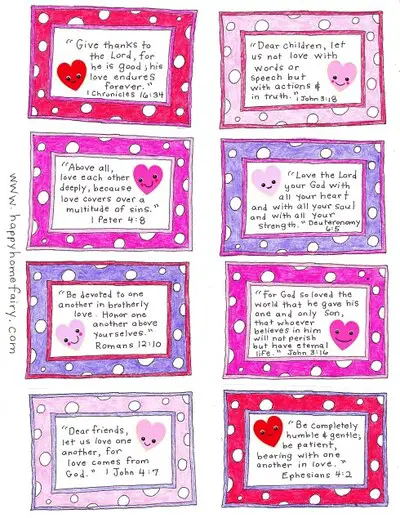 "Give thanks to
the Lord, for
he is good; his
love endures
forever."
1 Chronicles 16:34
"Dear children, let
us not love with
words or
speech but
with actions &
in truth." 1 John 3:18
"Above all,
love each other
deeply, because
love covers over a
multitude of sins."
1 Peter 4:8
"Love the Lord
your God with
all your heart
and with all your soul
and with all your
strength." Deuteronomy
6:5
"Be devoted to one
another in brotherly
love. Honor one
another above
yourselves."
Romans 12:10
"For God so loved the
world that he gave his
one and only Son,
that whoever
believes in him
will not perish
but have eternal
life." John 3:16
"Dear friends,
let us love one
another, for
love comes from
God." 1 John 4:7
"Be completely
humble & gentle;
be patient,
bearing with one
another in love."
Ephesians 4:2
www.happyhomefairy.com